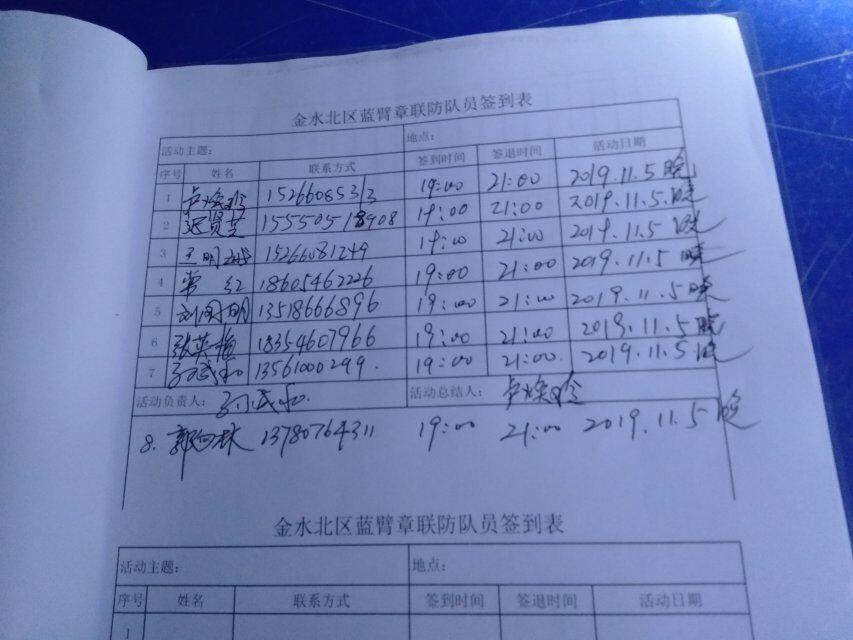 金水北区蓝臂章联防队员签到表
活动主题： 地点：
序号 姓名 联系方式 签到时间 签退时间 活动日期
1 卢焕珍 15266085313 19:00 21:00 2019.11.5晚
2 迟贤芝 15550518908 19:00 21:00 2019.11.5.晚
3 王明 15266081249 19:00 21:00 2019.11.5晚
4 常红 18605462226 19:00 21:00 2019.11.5晚
5 刘国明 13518666896 19:00 21:00 2019.11.5晚
6 张英梅 18354607966 19:00 21:00 2019.11.5晚
7 13561000299. 19:00 21:00. 2019.11.5晚
活动负责人： 活动总结人： 卢焕珍
8. 郭向林 13780764311 19:00 21:00 2019.11.5晚
金水北区蓝臂章联防队员签到表
活动主题： 地点：
序号 姓名 联系方式 签到时间 签退时间 活动日期
1